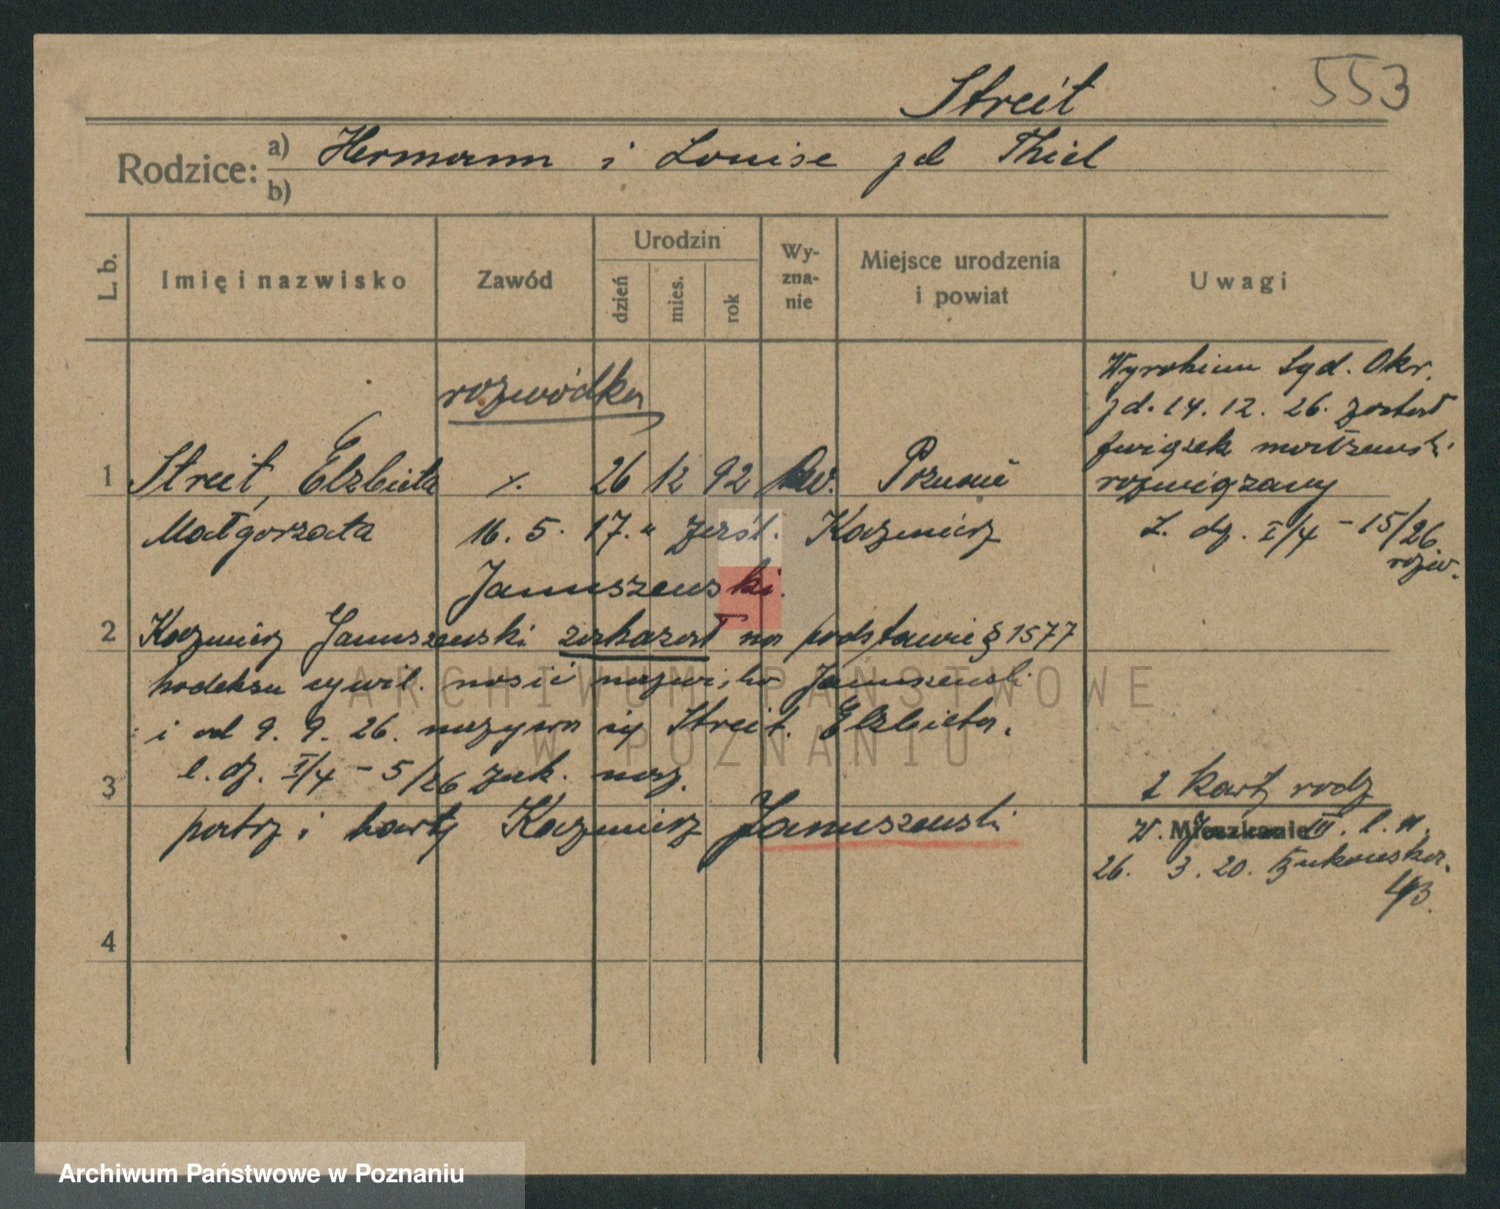 Streit 553
Rodzice: a) Hermann i Louise zd Thiel
b)
L. b. Imię i nazwisko Zawód Urodzin dzień mies. rok Wy-zna-nie Miejsce urodzenia i powiat Uwagi
rozwódka
Wyrokiem Sąd. Okr.
z d. 14. 12. 26. został
związek małżeński
rozwiązany
L. dz. I/4 - 15/26
rozw.
1 Streit, Elżbieta ✗ 26 12 92 ew. Poznań
Małgorzata 16. 5. 17. zaśl. Kazmierz
Januszewski.
2 Kazmierz Januszewski zakazał na podstawie § 1577
kodeksu cywil. nosić nazwisko Januszewski
i od 9. 9. 26. nazywa się Streit. Elżbieta.
3 l. dz. I/4 - 5/26 zak. naz.
patrz i karty Kazmierz Januszewski
2 karty rodz
Mieszkanie
W. III. l. n.
26. 3. 20. 43.
4
ARCHIWUM PAŃSTWOWE
W POZNANIU
Archiwum Państwowe w Poznaniu